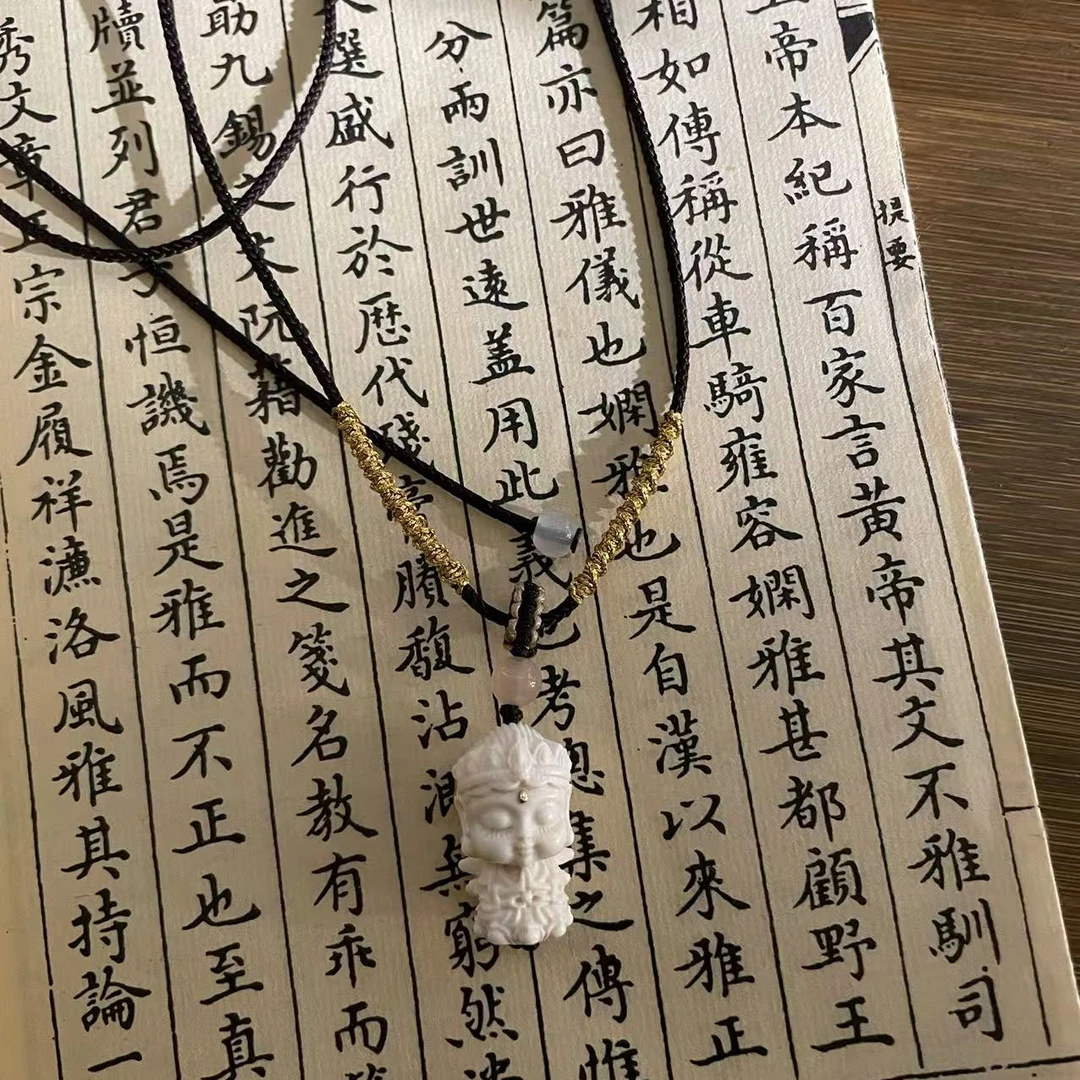 提要
帝本紀稱百家言黃帝其文不雅馴司
相如傳稱從車騎雍容嫻雅甚都顧野王
篇亦曰雅儀也嫻雅也是自漢以來雅正
分兩訓世遠蓋用此義也考總集之傳惟
文選盛行於歷代殘膏賸馥沾無窮然
九錫之文阮籍勸進之箋名教有乖而
牘並列君子恒譏焉是雅而不正也至真
秀文章正宗金履祥濂洛風雅其持論一